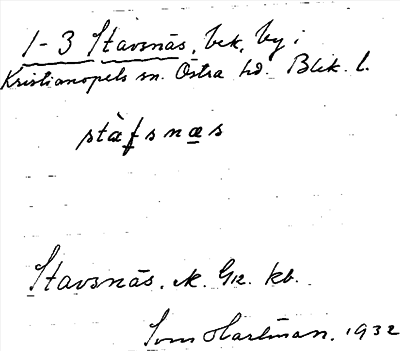 1-3 Stavsnäs, bek. by i
Kristianopels sn. Östra hd. Blek. l.
stàfsnæs
Stavsnäs. ek. Gız. kb.
Hartman. 1932